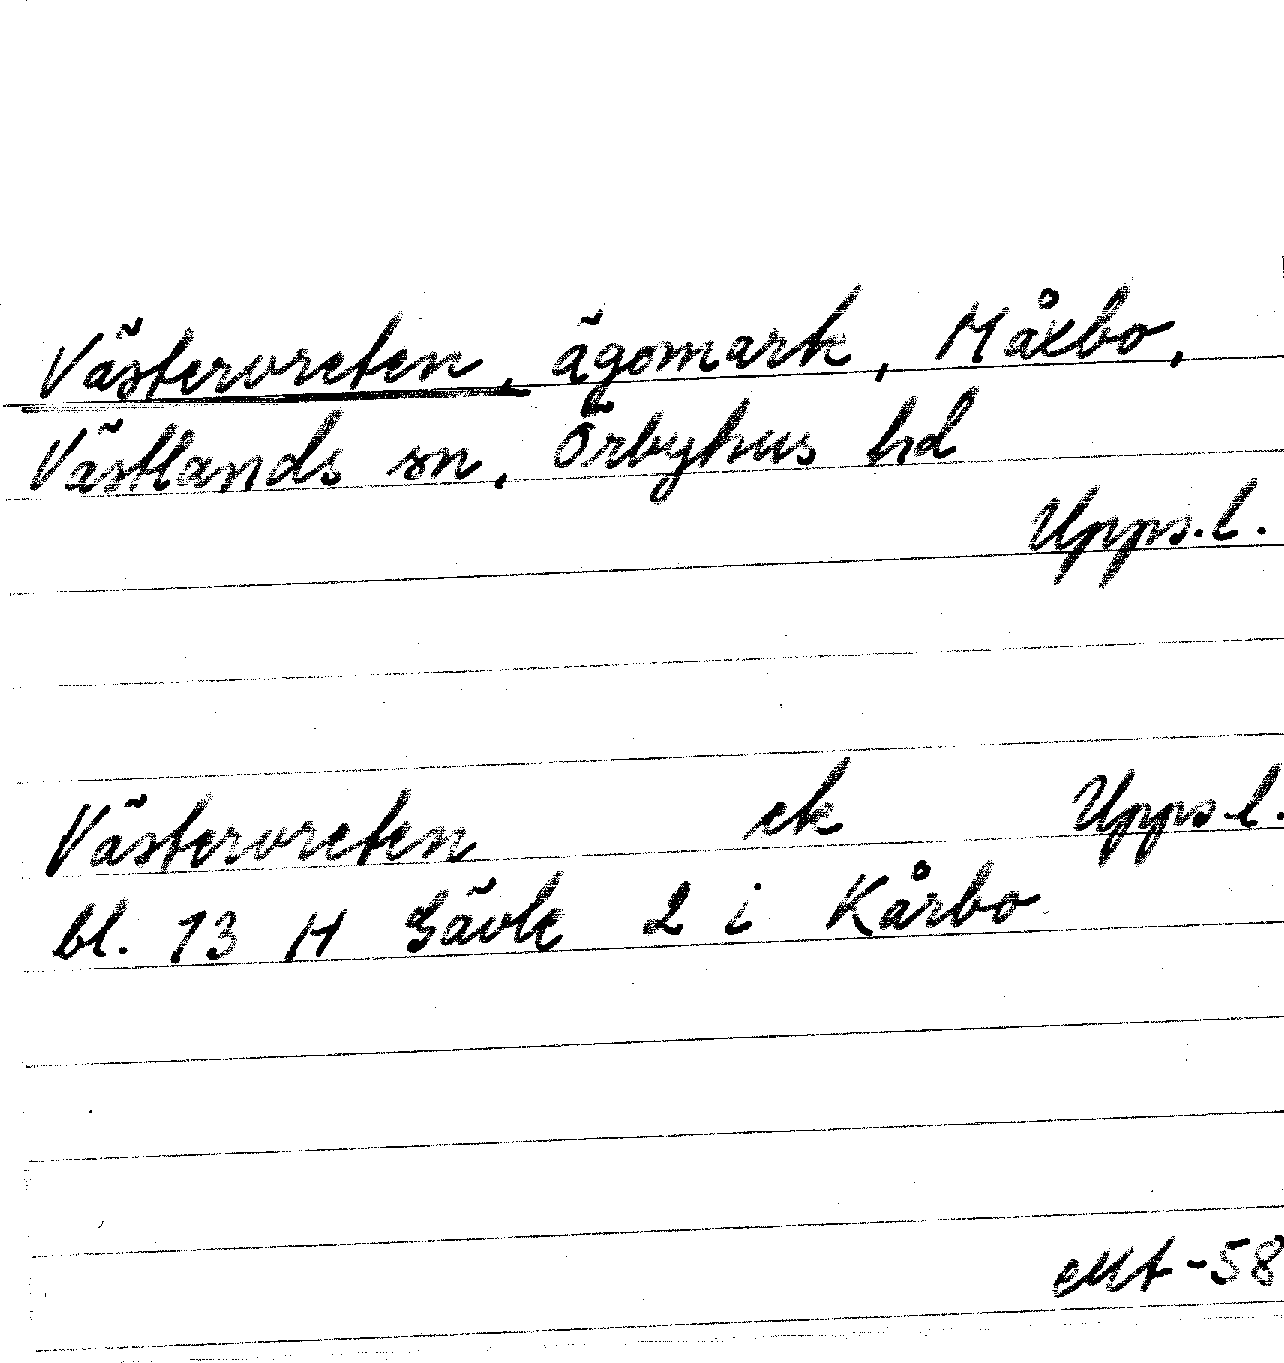 Västervreten, ägomark, Måxbo,
Västlands sn, Örbyhus hd
Upps.l.
Västervreten ek Upps.l.
bl. 13 H Gävle 2 i Kårbo
-58